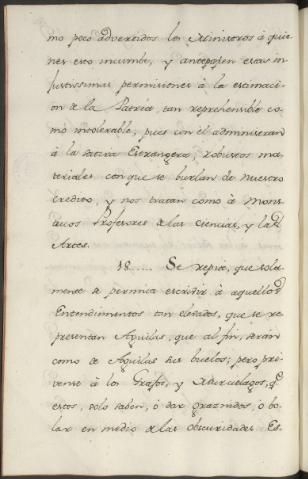 mo poco advertidos los Ministros à quie-
nes esto incumbe, y anteponen estas in-
justissimas permisiones à la estimaci-
on de la Patria, tan reprehensible co-
mo intolerable, pues con el administran
à la satira Estrangera, robustos ma-
teriales con que se burlan de nuestro
credito, y nos tratan como à Mons-
truos Profesores de las ciencias, y las
Artes.
18..... Se repite, que sola-
mente se permita escribir à aquellos
Entendimientos tan elevados, que se re-
presentan Aguilas, que al fin, seràn
como de Aguilas sus buelos; pero pri-
vense à los Grajos, y Murcielagos, q.e
estos, solo saben, ò dar graznidos, ò bo-
lar en medio de las obscuridades. Es-